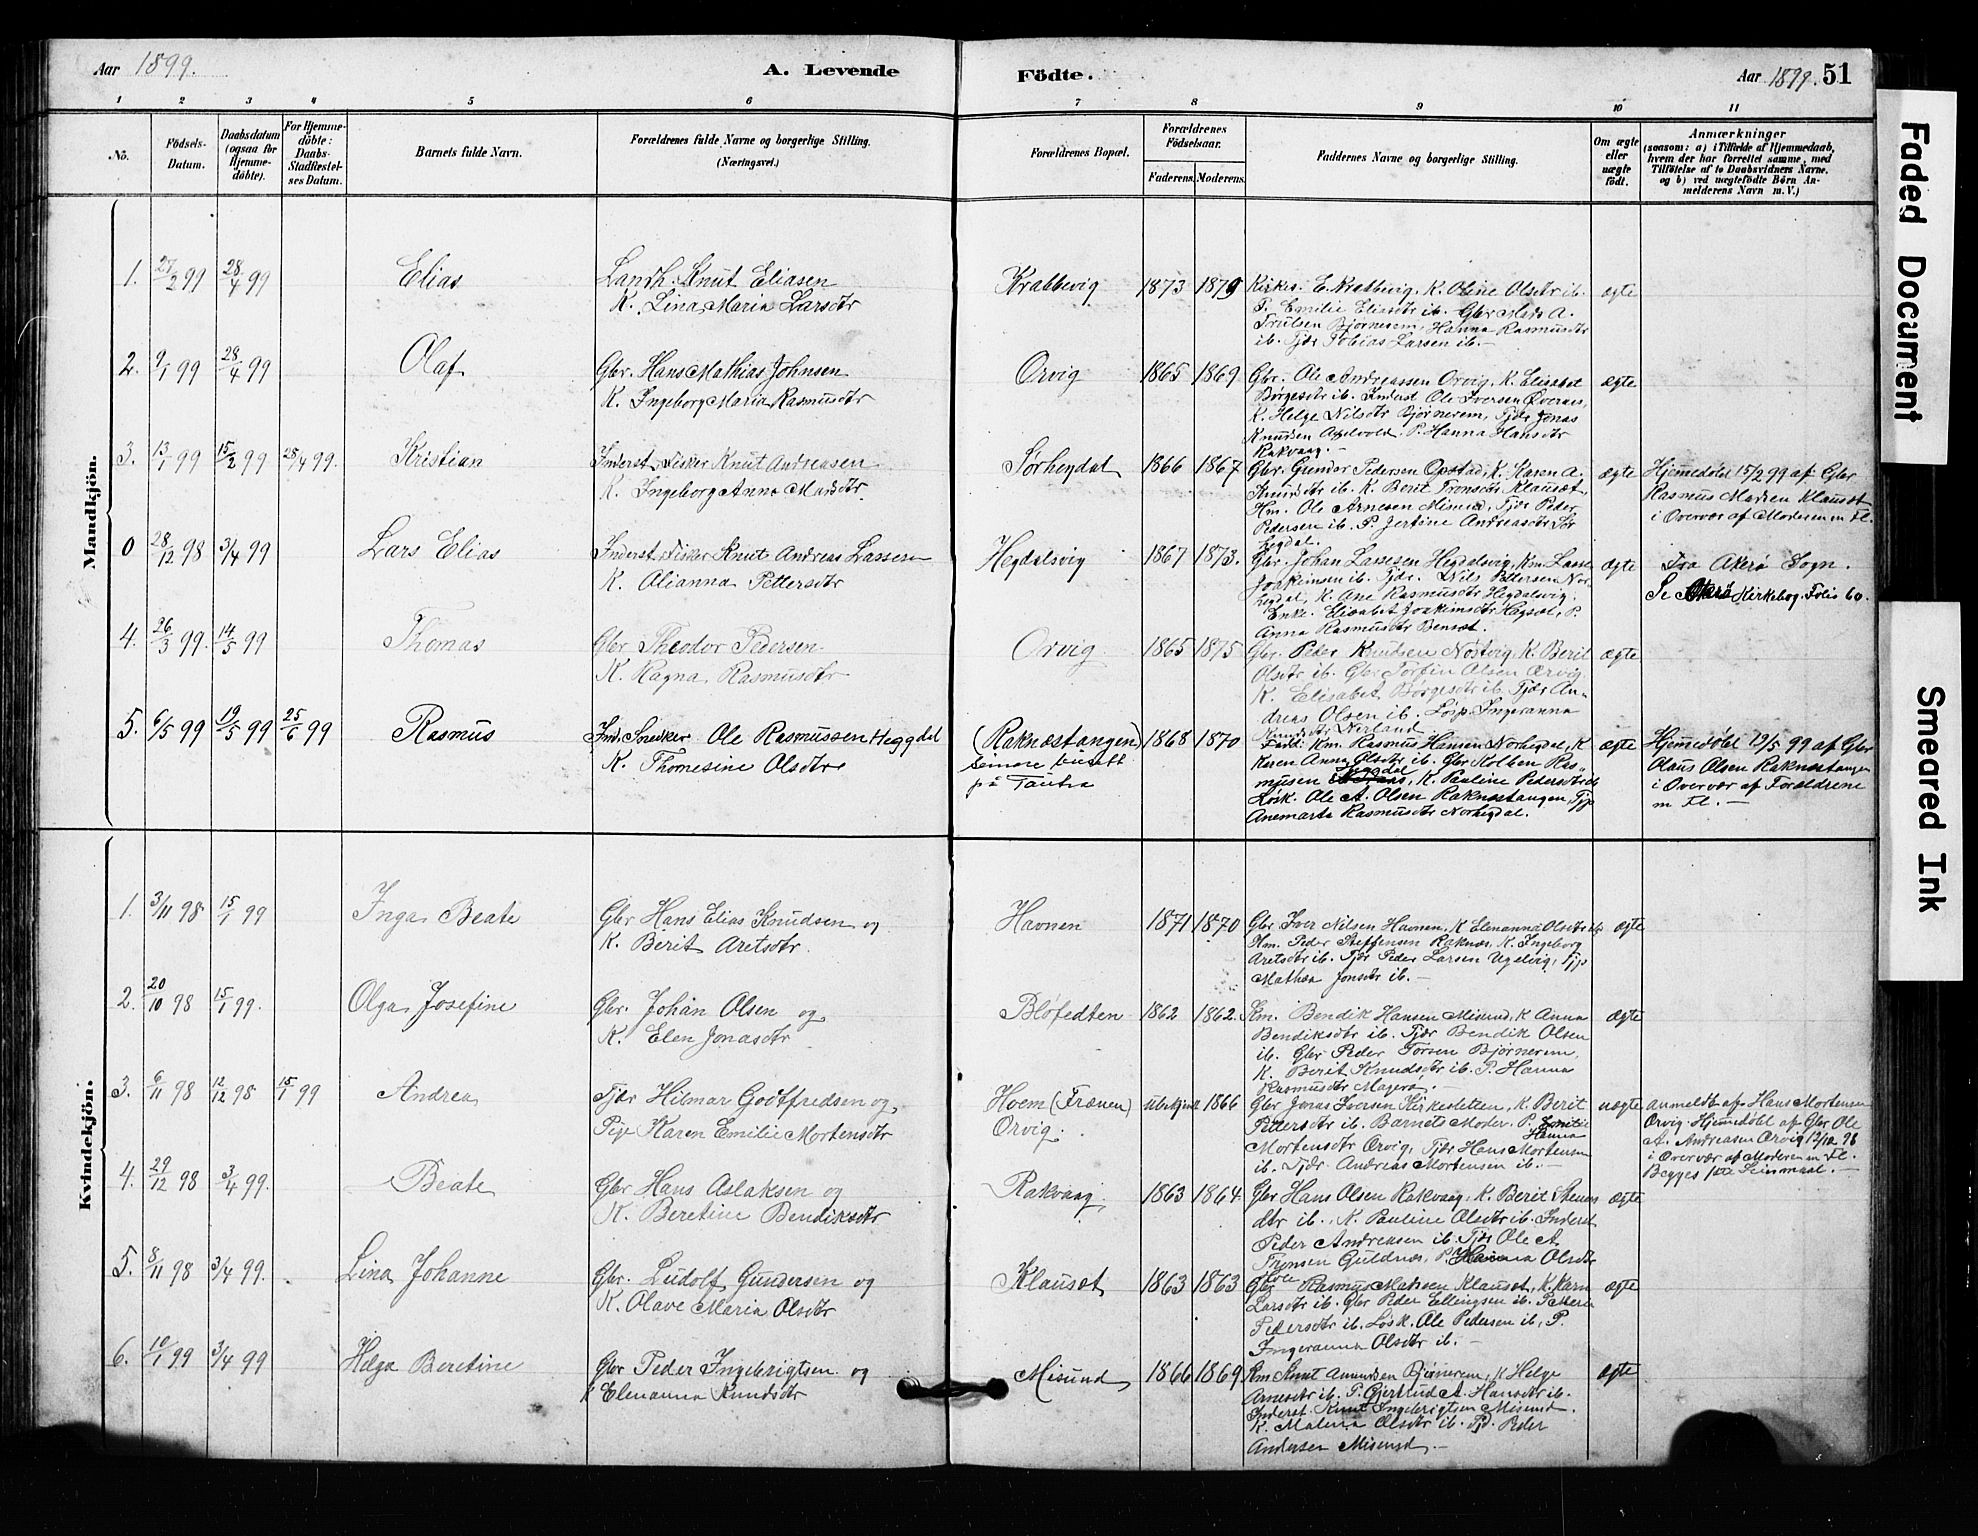 Aar 1899. A. Levende Födte. Aar 1899. 51
1 2 3 4 5 6 7 8 9 10 11
No.
Födsels-
Datum.
Daabsdatum
(ogsaa for
Hjemme-
döbte).
For Hjemme-
döbte:
Daabs-
Stadfæstel-
ses Datum.
Barnets fulde Navn.
Forældrenes fulde Navne og borgerlige Stilling.
(Næringsvei.)
Forældrenes Bopæl.
Forældrenes
Födselsaar.
Faderens. Moderens.
Faddernes Navne og borgerlige Stilling.
Om ægte
eller
uægte
födt.
Anmærkninger
(saasom: a) i Tilfælde af Hjemmedaab,
hvem der har forrettet samme, med
Tilföielse af to Daabsvidners Navne,
og b) ved uægtefödte Börn An-
melderens Navn m. V.)
Mandkjön.
1. 27/2 99 28/4 99 Elias
Landh. Knut Eliasen
K. Lina Maria Larsdtr
Krabbevig 1873 1879
Kirkes. E. Krabbevig, K. Oline Olsdtr ib.
P. Emilie Eliasdtr ib. Gbr Mads A.
Trulsen Bjørnerem, Hanna Rasmusdtr
ib. Tjdr Tobias Larsen ib.—
ægte
2. 9/1 99 28/4 99 Olaf
Gbr. Hans Mathias Johnsen
K. Ingeborg Maria Rasmusdtr
Orvig 1865 1869
Gbr. Ole Andreassen Orvig, K. Elisabet
Børgesdtr ib. Inderst Ole Iversen Øvernes,
K. Helge Nilsdtr Bjørnerem, Tjdr Jonas
Knudsen Apelvold, P. Hanna Hansdtr
Rakvaag.—
ægte
3. 13/1 99 15/2 99 28/4 99. Kristian
Inderst Fisker Knut Andreasen
K. Ingeborg Anna Marsdtr
Sørhegdal 1866 1867
Gbr. Gunder Pedersen Opstad, K. Karen A.
Knudsdtr ib. K. Berit Tronsdtr Klauset,
Hm. Ole Arnesen Misund, Tjdr Peder
Pedersen ib. P. Jertine Andreasdtr Sør
hegdal.
ægte
Hjemmedøbt 15/2 99 af Gbr
Rasmus Madsen Klauset
i Overvær af Moderen m Fl.
0 28/12 98 3/4 99 Lars Elias
Inderst Fisker Knut Andreas Lassesen
K. Alianna Pettersdtr
Hegdalsvig 1867 1873.
Gbr. Johan Lassesen Hegdalsvig, Km. Lasse
Joakimsen ib. Tjdr. Nils Pettersen Nor-
hegdal, K. Ane Rasmusdtr Hegdalsvig.
Enke. Elisabet Joakimsdtr Hegdal, P.
Anna Rasmusdtr Benset.
ægte
Fra Akerø Sogn.
Se Akerø Kirkebog. Folio 60.
4. 26/3 99. 14/5 99 Thomas
Gbr Theodor Pedersen
K. Ragna Rasmusdtr
Orvig 1865 1875
Gbr. Peder Knudsen Nostvig, K. Berit
Olsdtr ib. Gbr Torfin Olsen Orvig
K. Elisabet Børgesdtr ib. Tjdr An-
dreas Olsen ib. Løsp. Ingeranna
Knudsdtr Nerland
ægte
5. 6/5 99 19/5 99 25/6 99 Rasmus
Ind. Snedker Ole Rasmussen Heggdal
K. Thomesine Olsdtr
(Raknæstangen)
senere busatt
på Tautra
1868 1870
Fadd: Km. Rasmus Hansen Norhegdal, K
Karen Anna Olsdtr ib. Gbr Kolben Ras-
musen Hegdal, K. Pauline Pedersdtr ib
Løsk. Ole A. Olsen Raknestangen, Tjp
Anemarta Rasmusdtr Norhegdal.
ægte
Hjemmedøbt 19/5 99 af Gbr
Olaus Olsen Raknestangen
i Overvær af Forældrene
m Fl.—
Kvindekjön.
1. 3/11 98 15/1 99 Inga Beate
Gbr Hans Elias Knudsen og
K. Berit Aretsdtr.
Havnen 1871 1870
Gbr Iver Nilsen Havnen, K Elenanna Olsdtr ib
Hm. Peder Steffensen Raknes, K. Ingeborg
Aretsdtr ib. Tjdr Peder Larsen Ugelvig, Tjp
Mathea Jonsdtr ib.—
ægte
2. 20/10 98 15/1 99. Olga Josefine
Gbr. Johan Olsen og
K. Elen Jonasdtr
Bløfedten 1862 1862.
Km. Bendik Hansen Misund, K Anna
Bendiksdtr ib. Tjdr Bendik Olsen
ib. Gbr Peder Torsen Bjørnerem,
K. Berit Knudsdtr ib. P. Hanna
Rasmusdtr Magerø.—
ægte
3. 6/11 98 12/12 98 15/1 99 Andrea
Tjdr Hilmar Godtfredsen og,
Pige Karen Emilie Mortensdtr
Hoem (Frænen)
Orvig.
ubekjent 1866
Gbr Jonas Iversen Kirkesletten, K. Berit
Pettersdtr ib. Barnets Moder. P. Emilie
Hanna
Mortensdtr Orvig, Tjdr Hans Mortensen
ib. Tjdr. Andreas Mortensen ib.—
uægte
anmeldt af Hans Mortensen
Orvig. Hjemmedøbt af Gbr Ole
A. Andreasen Orvig 12/12 98
i Overvær af Moderen m Fl.
Begges 1ste Leiermaal.—
4. 29/12 98 3/4 99. Beate
Gbr Hans Aslaksen og
K. Beretine Bendiksdtr
Rakvaag 1863 1864
Gbr Hans Olsen Rakvaag, K. Berit Steners
dtr ib. K. Pauline Olsdtr ib. Inderst
Peder Andreasen ib. Tjdr Ole A.
Tronsen Guldnæs, P Hanna Olsdtr
ægte
5. 8/11 98 3/4 99. Lina Johanne
Gbr. Ludolf Gundersen og
K. Olave Maria Olsdtr
Klauset 1863 1863
Gbr Rasmus Madsen Klauset, K. Karn
Larsdtr ib. Gbr Peder Ellingsen ib. P. Meria
Pedersdtr ib. Løsk. Ole Pedersen ib, P.
Ingeranna Olsdtr ib.—
ægte
6. 10/1 99 3/4 99 Helga Beretine
Gbr Peder Ingebrigtsen og
K Elenanna Knudsdtr
Misund 1866 1869
Km Knut Amundsen Bjørnerem, K Helge
Arnesdtr ib. P. Gjertrud A. Hansdtr ib.
Inderst. Knut Ingebrigtsen Misund.
K. Malena Olsdtr ib. Tjd. Peder
Andersen Misund.—
ægte
Faded Document
Smeared Ink